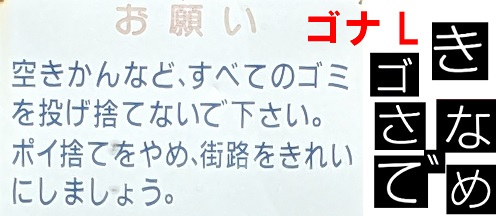 お願い
空きかんなど、すべてのゴミ
を投げ捨てないで下さい。
ポイ捨てをやめ、街路をきれい
にしましょう。
ゴナ L
き
ゴ
さ な
で め